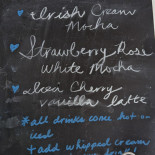 Irish Cream
Mocha
Strawberry Rose
White Mocha
Cherry
vanilla latte
*all drinks come hot or
iced
*add whipped cream